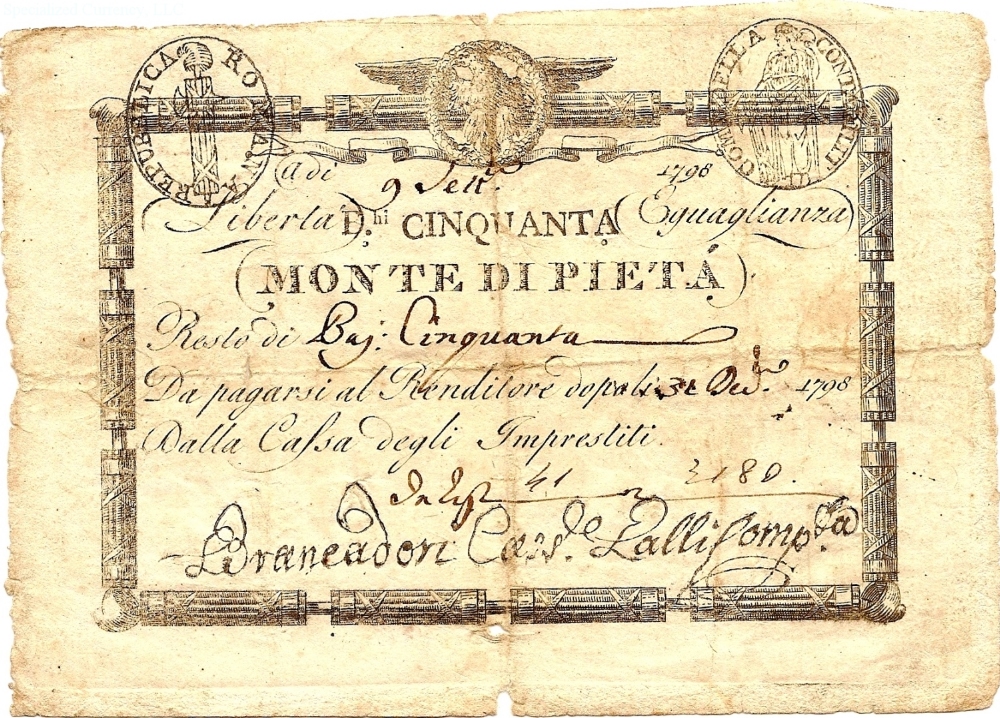 REPUBBLICA ROMANA
COMP. DELLA CONT
A di 9 Sett.e 1798
Liberta D.hi CINQUANTA Eguaglianza
MONTE DI PIETÀ
Resto di Baj: Cinquanta
Da pagarsi al Renditore dopo li 31 Dec.e 1798
Dalla Cassa degli Imprestiti.
41 2180.
Brancadori Cass.e Lalli Comp.ta